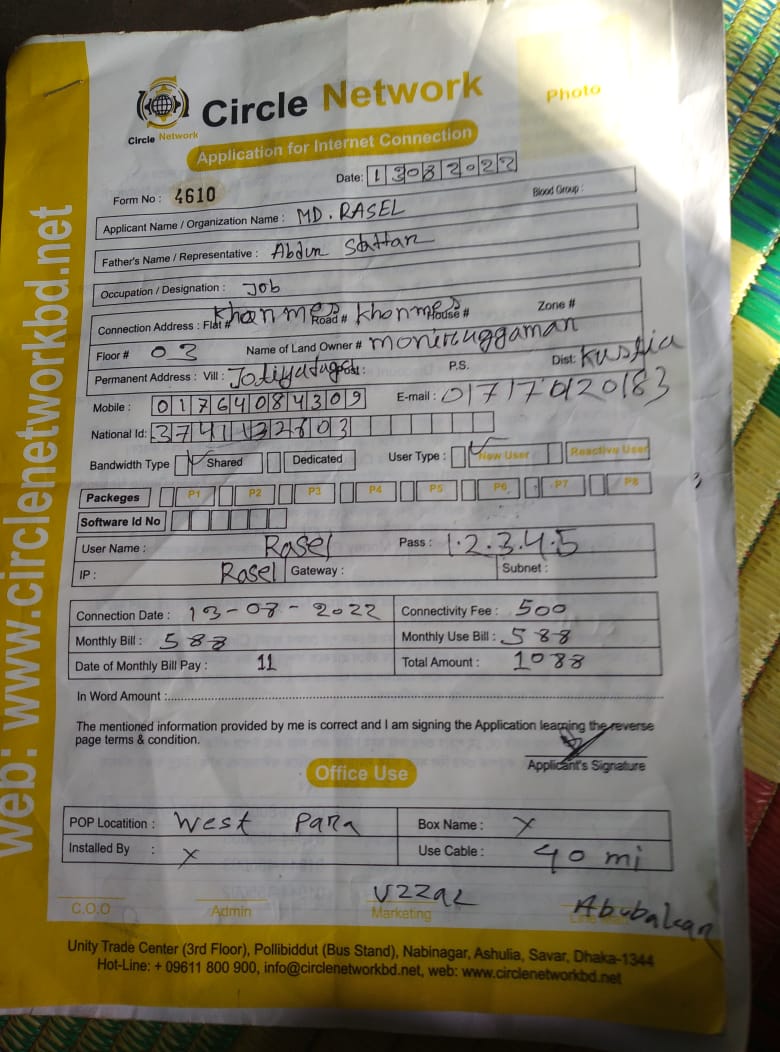 Circle Network
Circle Network
Photo
Application for Internet Connection
Date: 13082022
Form No : 4610
Blood Group :
Applicant Name / Organization Name : MD. RASEL
Father's Name / Representative : Abdur Sattar
Occupation / Designation : Job
Connection Address : Flat # Khan mes Road # khonmes House # Zone #
Floor # 03 Name of Land Owner #
Permanent Address : Vill : Post : P.S. Dist:
Mobile : 01764084309 E-mail : 01717020183
National Id:
Bandwidth Type Shared Dedicated User Type : New User Reactive User
Packeges P1 P2 P3 P4 P5 P6 P7 P8
Software Id No
User Name : Rasel Pass : 1.2.3.4.5
IP : Rasel Gateway : Subnet :
Connection Date : 13-08-2022 Connectivity Fee : 500
Monthly Bill : 588 Monthly Use Bill : 588
Date of Monthly Bill Pay : 11 Total Amount : 1088
In Word Amount :
The mentioned information provided by me is correct and I am signing the Application learning the reverse
page terms & condition.
Applicant's Signature
Office Use
POP Locatition : West Para Box Name : X
Installed By : X Use Cable : 40 mi
UZZAL Abubakar
C.O.O Admin Marketing
Unity Trade Center (3rd Floor), Pollibiddut (Bus Stand), Nabinagar, Ashulia, Savar, Dhaka-1344
Hot-Line: + 09611 800 900, info@circlenetworkbd.net, web: www.circlenetworkbd.net
web: www.circlenetworkbd.net